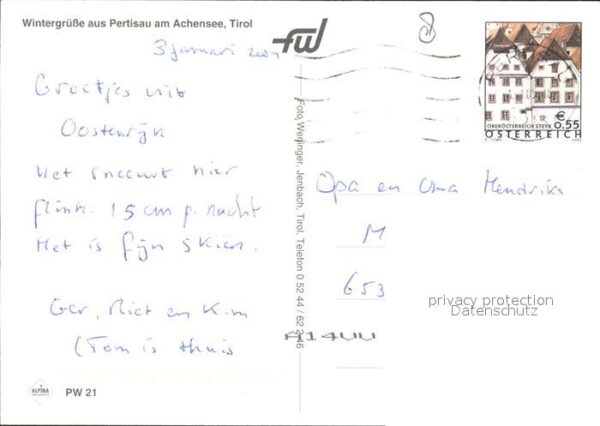 Wintergrüße aus Pertisau am Achensee, Tirol
fwl
3 januari 2004
Groetjes uit
Oostenrijk
Het sneeuwt hier
flink. 15 cm p. nacht
Het is fijn skiën.
Ger, Riet en Kim
(Tom is thuis
ALPINA
PW 21
Foto Werlinger, Jenbach, Tirol, Telefon 0 52 44 / 62 2 46
8
€ 0,55
OBERÖSTERREICH STEYR
ÖSTERREICH
Opa en Oma Hendriks
M
653
privacy protection
Datenschutz
A14UU